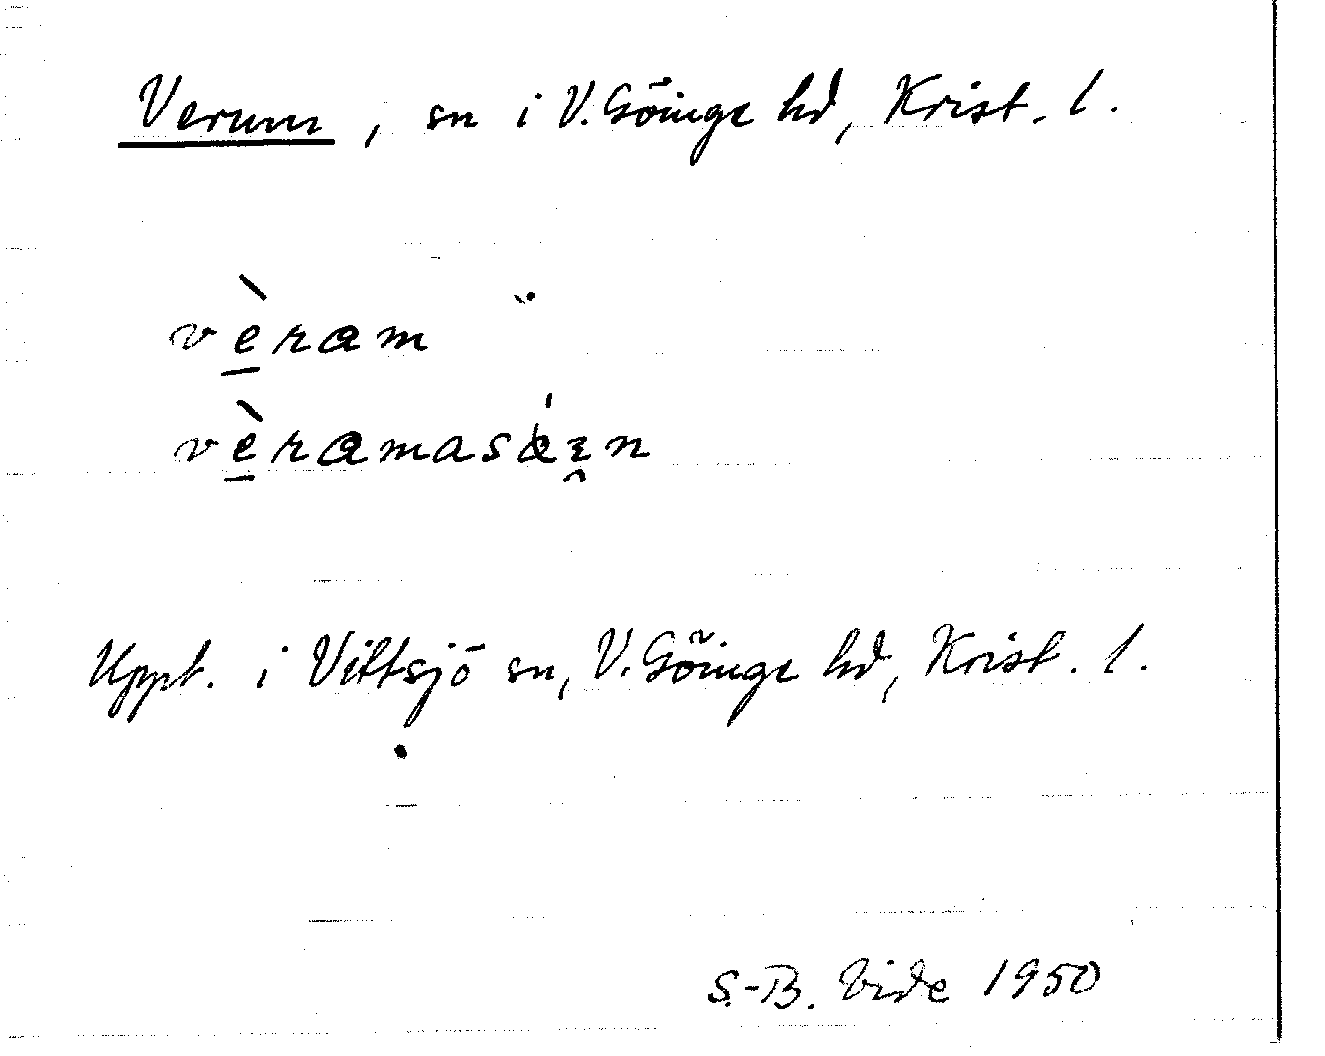 Verum, sn i V. Göinge hd, Krist. l.
vèram
vèramasān
Uppt. i Vittsjö sn, V. Göinge hd, Krist. l.
S.-B. Vide 1950